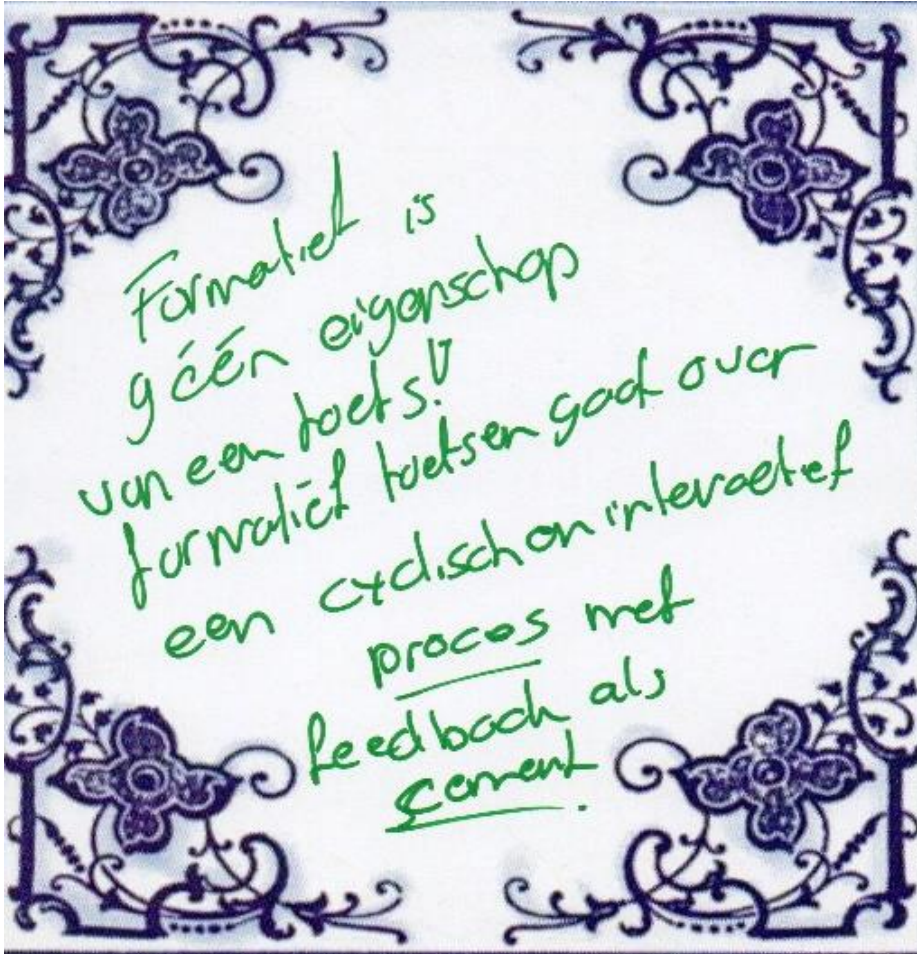 Formatief is
géén eigenschap
van een toets!!
formatief toetsen gaat over
een cyclisch en interactief
proces met
feedback als
cement.